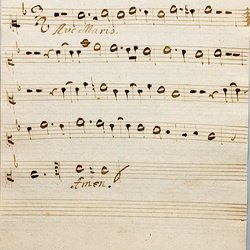 Ave Maris.
Amen.